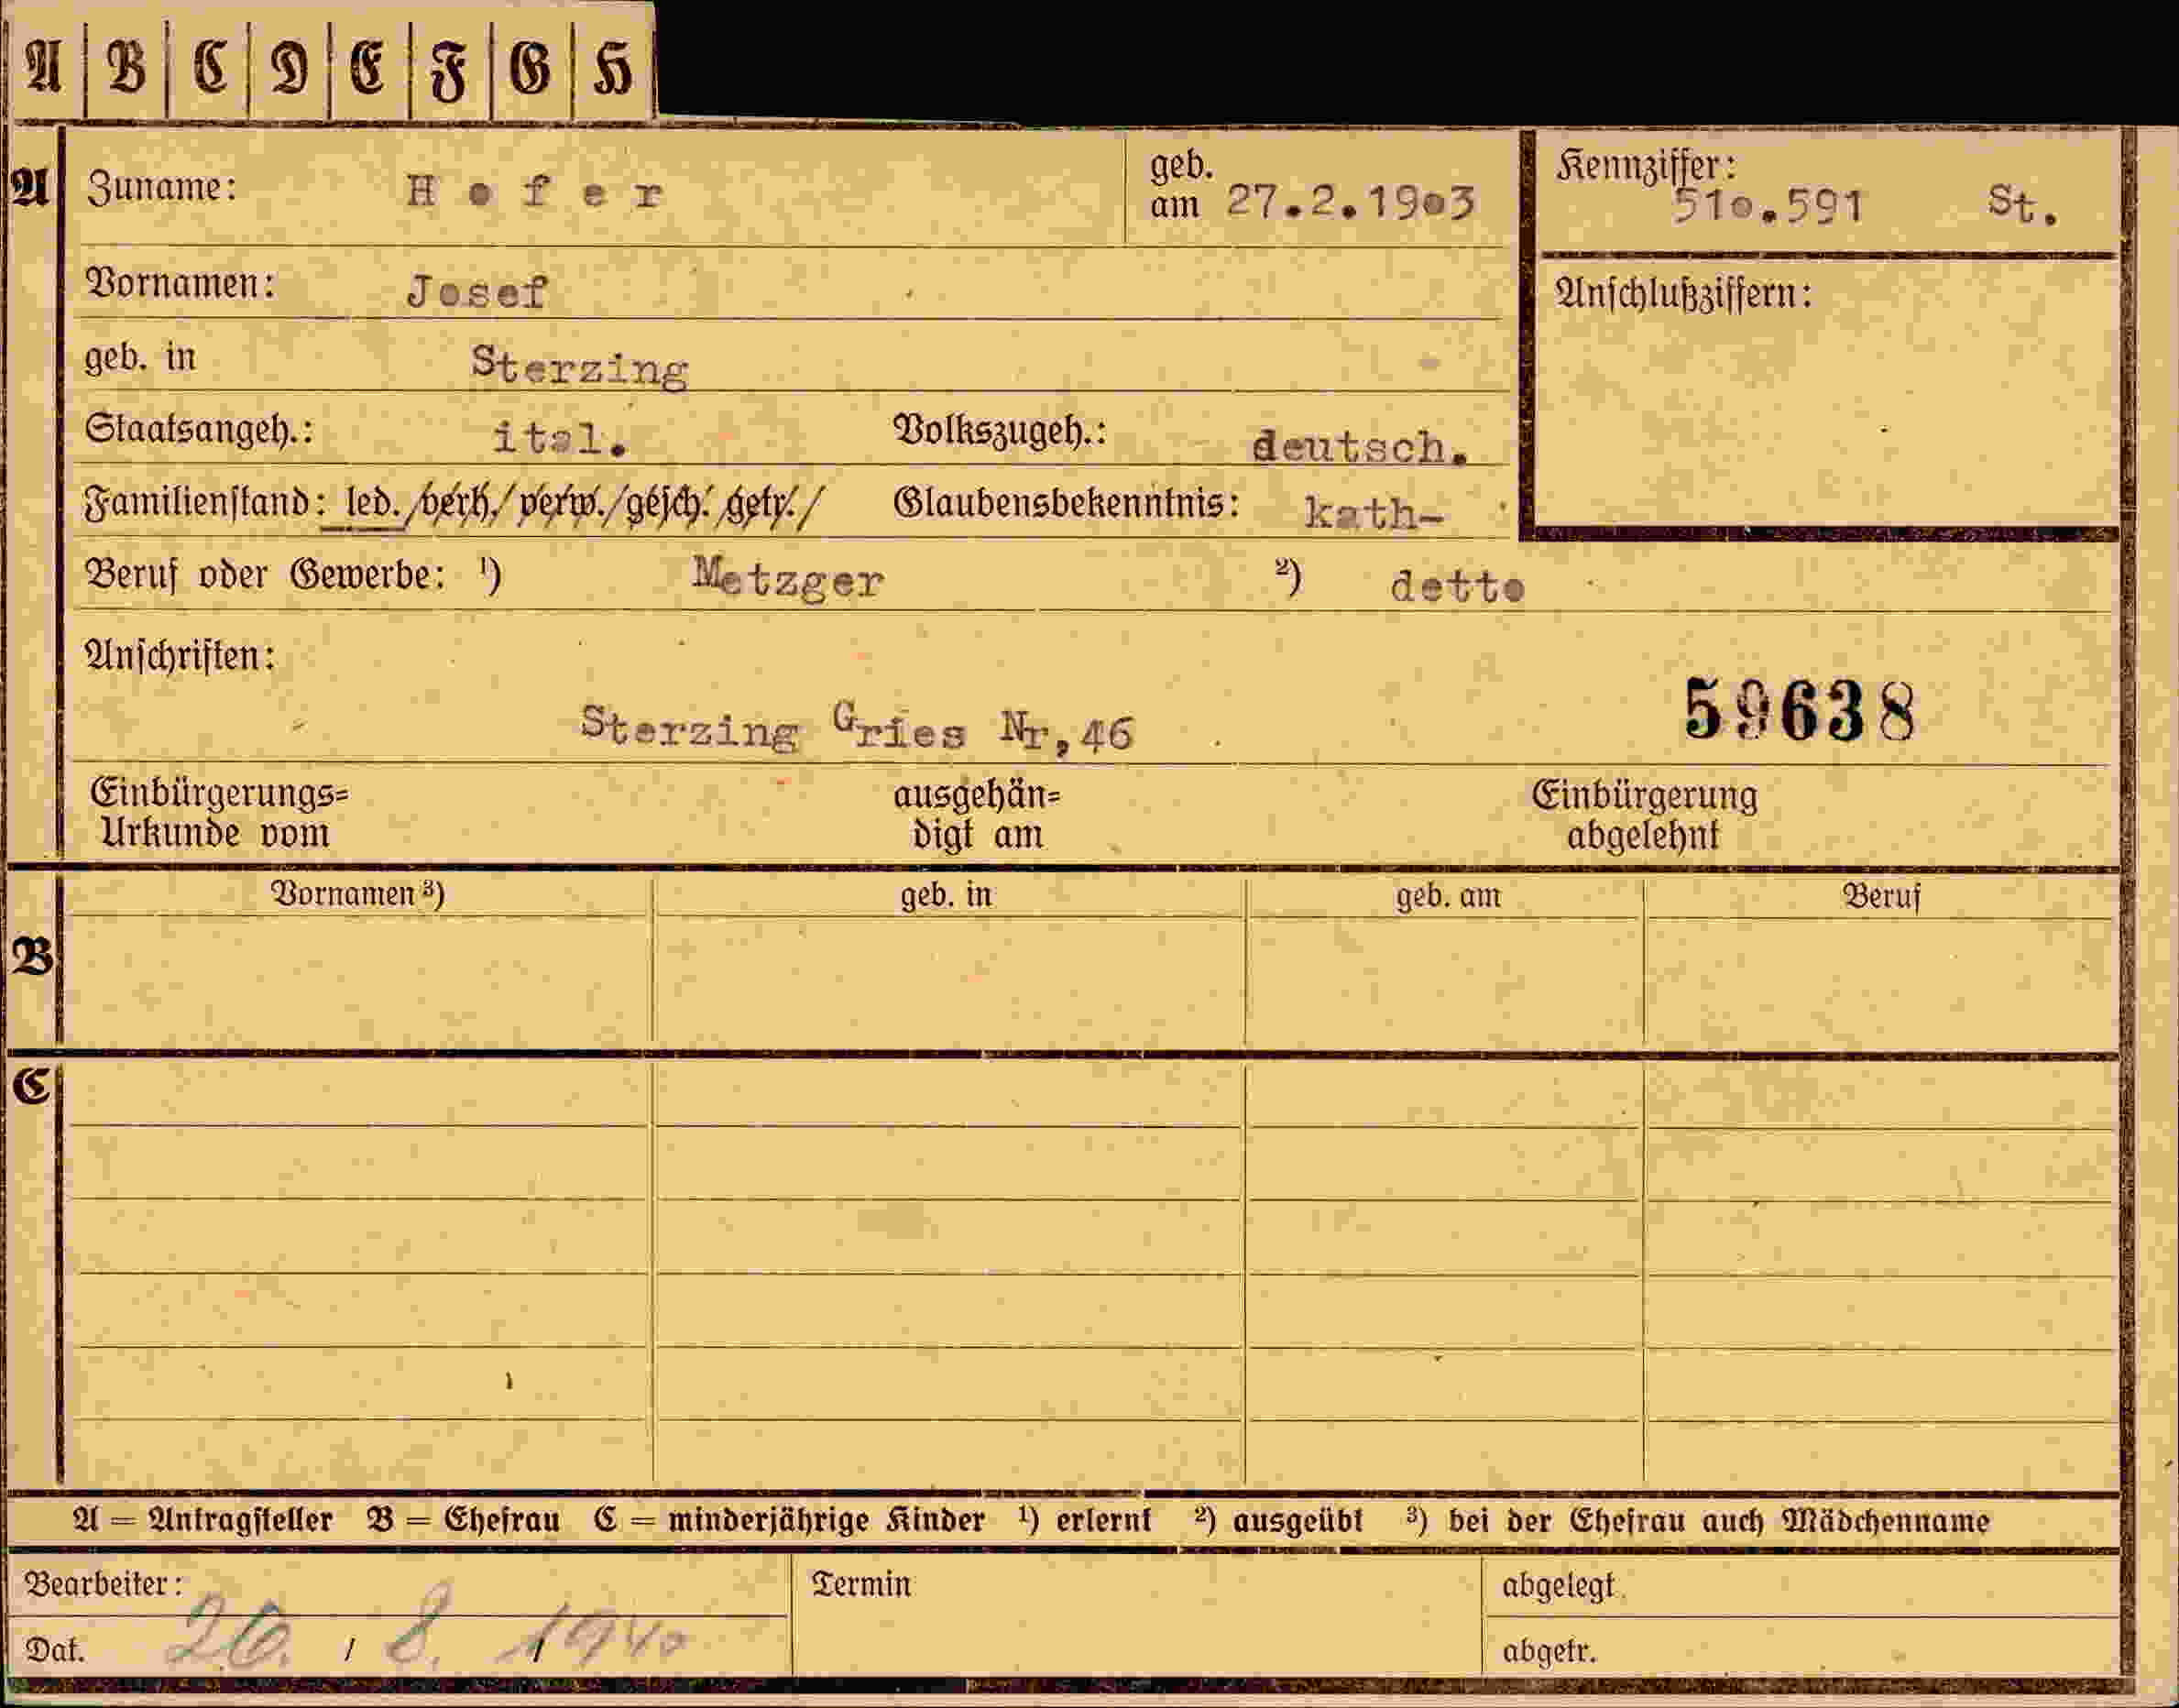 A B C D E F G H
A Zuname: Hofer geb. am 27.2.1903 Kennziffer: 510.591 St.
Vornamen: Josef Anschlußziffern:
geb. in Sterzing
Staatsangeh.: ital. Volkszugeh.: deutsch.
Familienstand: led./verh./verw./gesch./getr./ Glaubensbekenntnis: kath-
Beruf oder Gewerbe: ¹) Metzger ²) detto
Anschriften:
Sterzing Gries Nr,46 59638
Einbürgerungs= ausgehän= Einbürgerung
Urkunde vom digt am abgelehnt
Vornamen ³) geb. in geb. am Beruf
B
C
A = Antragsteller B = Ehefrau C = minderjährige Kinder ¹) erlernt ²) ausgeübt ³) bei der Ehefrau auch Mädchenname
Bearbeiter: Termin abgelegt.
Dat. 26. / 8. 1940 abgetr.